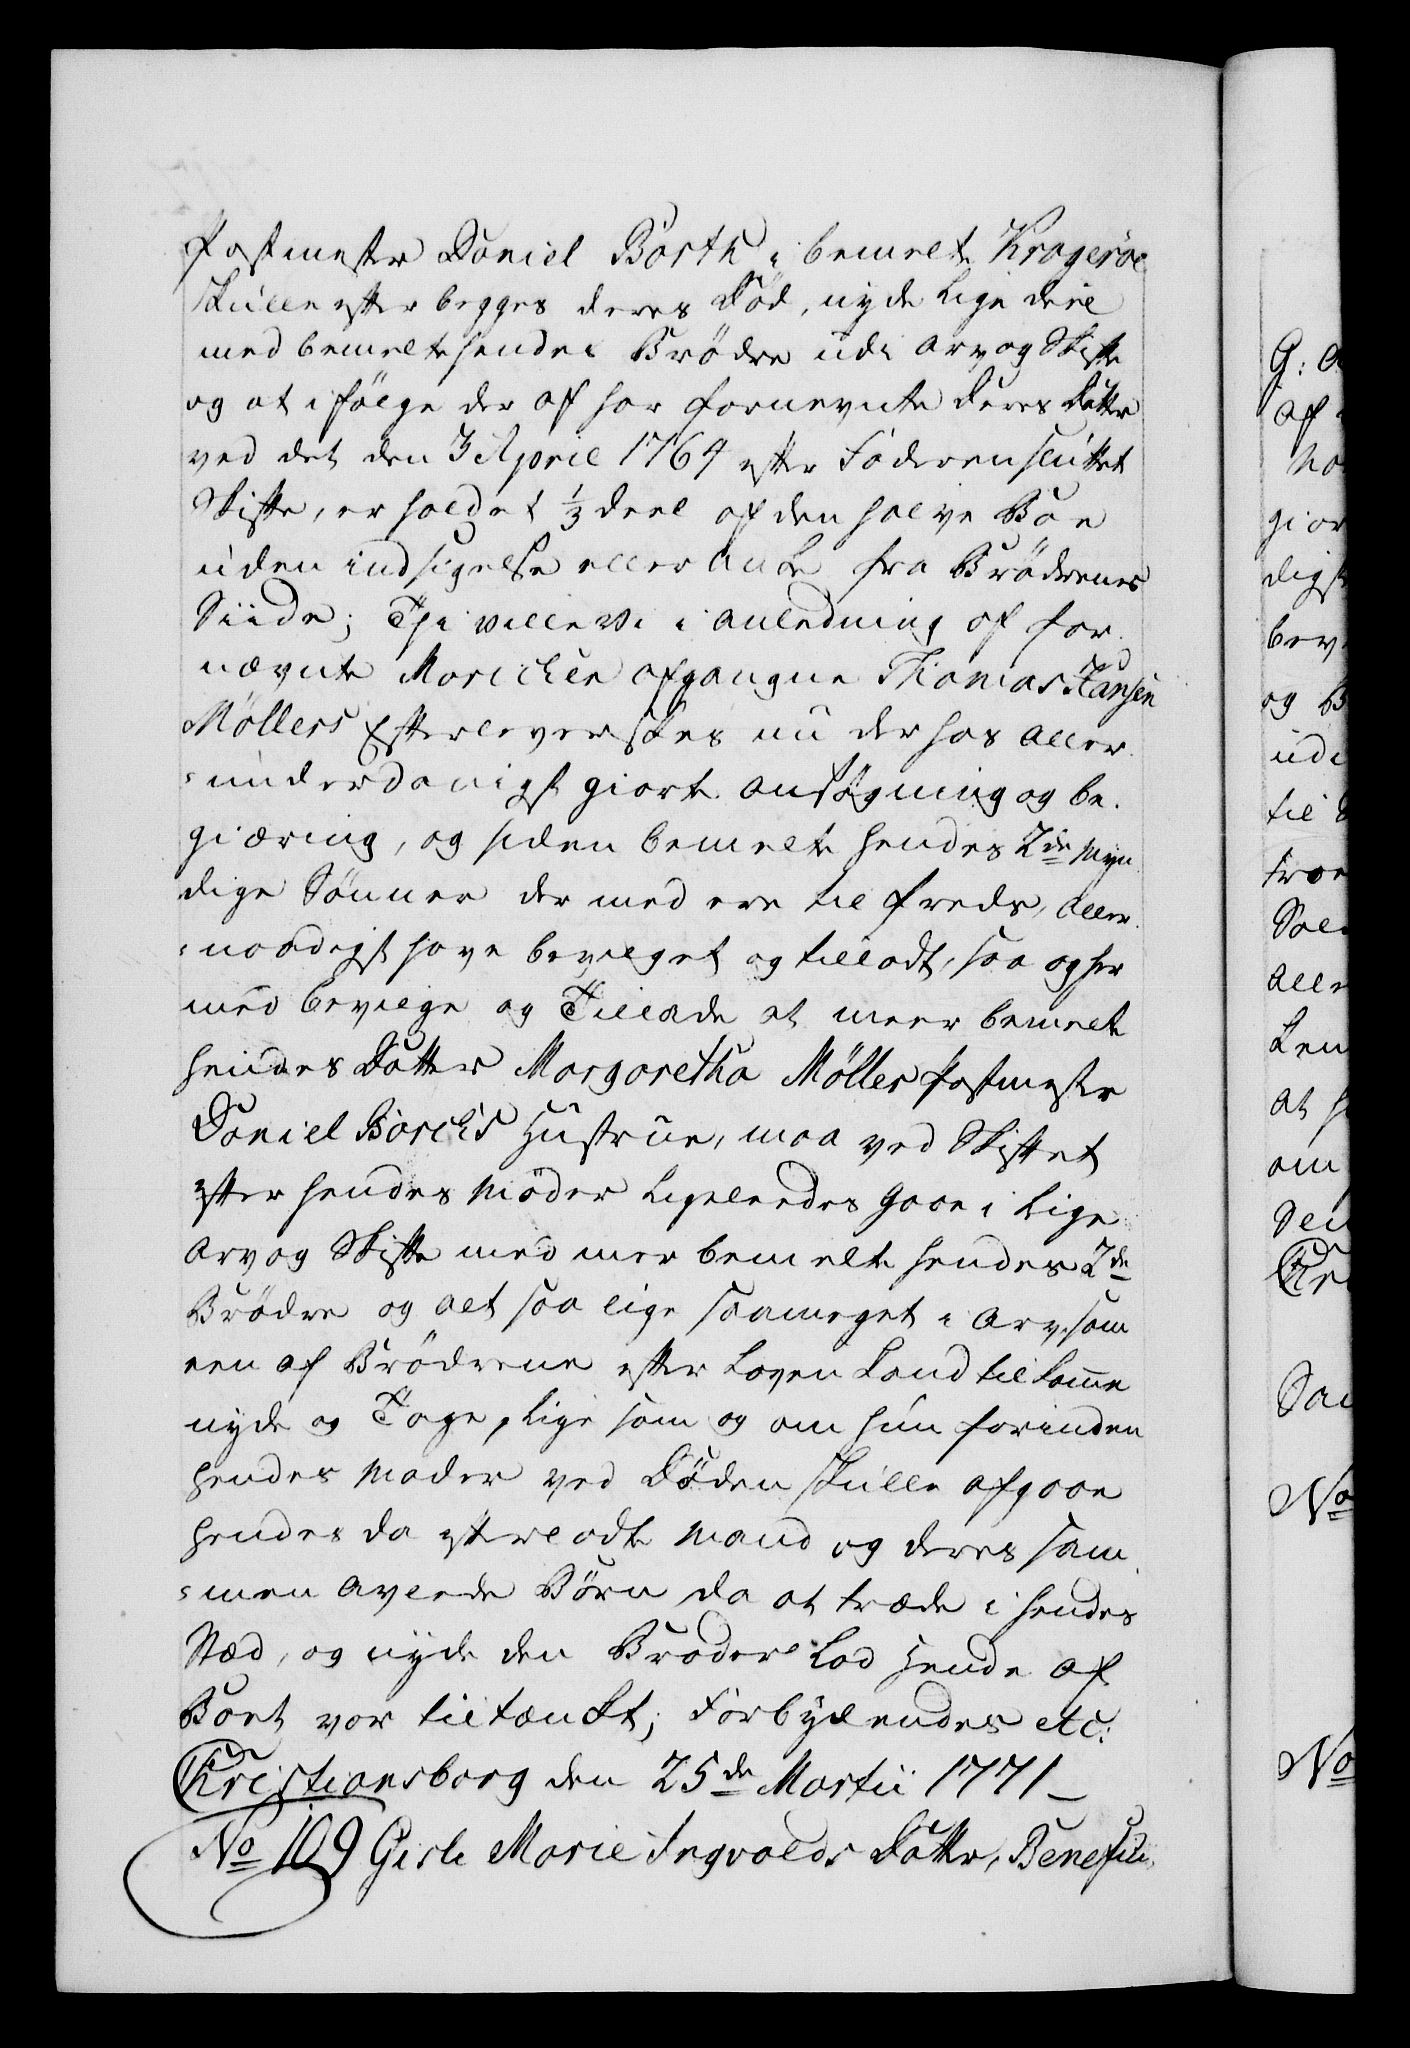 Postmester Daniel Borth i bemelte Kragerøe
skulle efter begges deres Död, nyde lige deel
med bemelte hendes Brödre udi Arv og Skifte
og at i fölge der af har fornevnte deres Datter
ved det den 3 April 1764 efter Faderen sluttet
Skifte, er holdet 1/3 deel af den halve Boe
uden indsigelse eller Anke fra Brödrenes
Siide; Thi ville Vi i anledning af for
nævnte Marichen afgangne Thomas Hansen
Möllers Efterleverskes nu der hos aller
=underdanigst giorte ansøgning og be.
giæring, og siden bemelte hendes 2de Myn
dige Sönner der med ere til freds, aller.
=naadigst have bevilget og tilladt, saa og her
med bevilge og Tillade at meer bemelte
hendes Datter Margaretha Möller Postmester
Daniel Borchs Hustrue, maa ved Skiftet
efter hendes Moder ligeleedes Gaae i lige
Arv og Skifte med mer bemelte hendes 2de
Brödre og alt saa lige saameget i Arv, som
een af Brödrene efter Loven kand tilkomme
nyde og Tage, lige som og om hun forinden
hendes Moder ved Döden skulle afgaae
hendes da efterladte Mand og deres sam
=men avlede Börn da at træde i hendes
Stæd, og nyde den Broder Lod hende af
Boet var tiltænkt; Forbydendes etc:
Christiansborg den 25de Martii 1771
No 109 Gisle Marie Ingvolds Datter, Benefici
G: A
af
giør
digst
bev
og B
udi
til S
troe
aller
at h
om
Chr
Sam
No
No